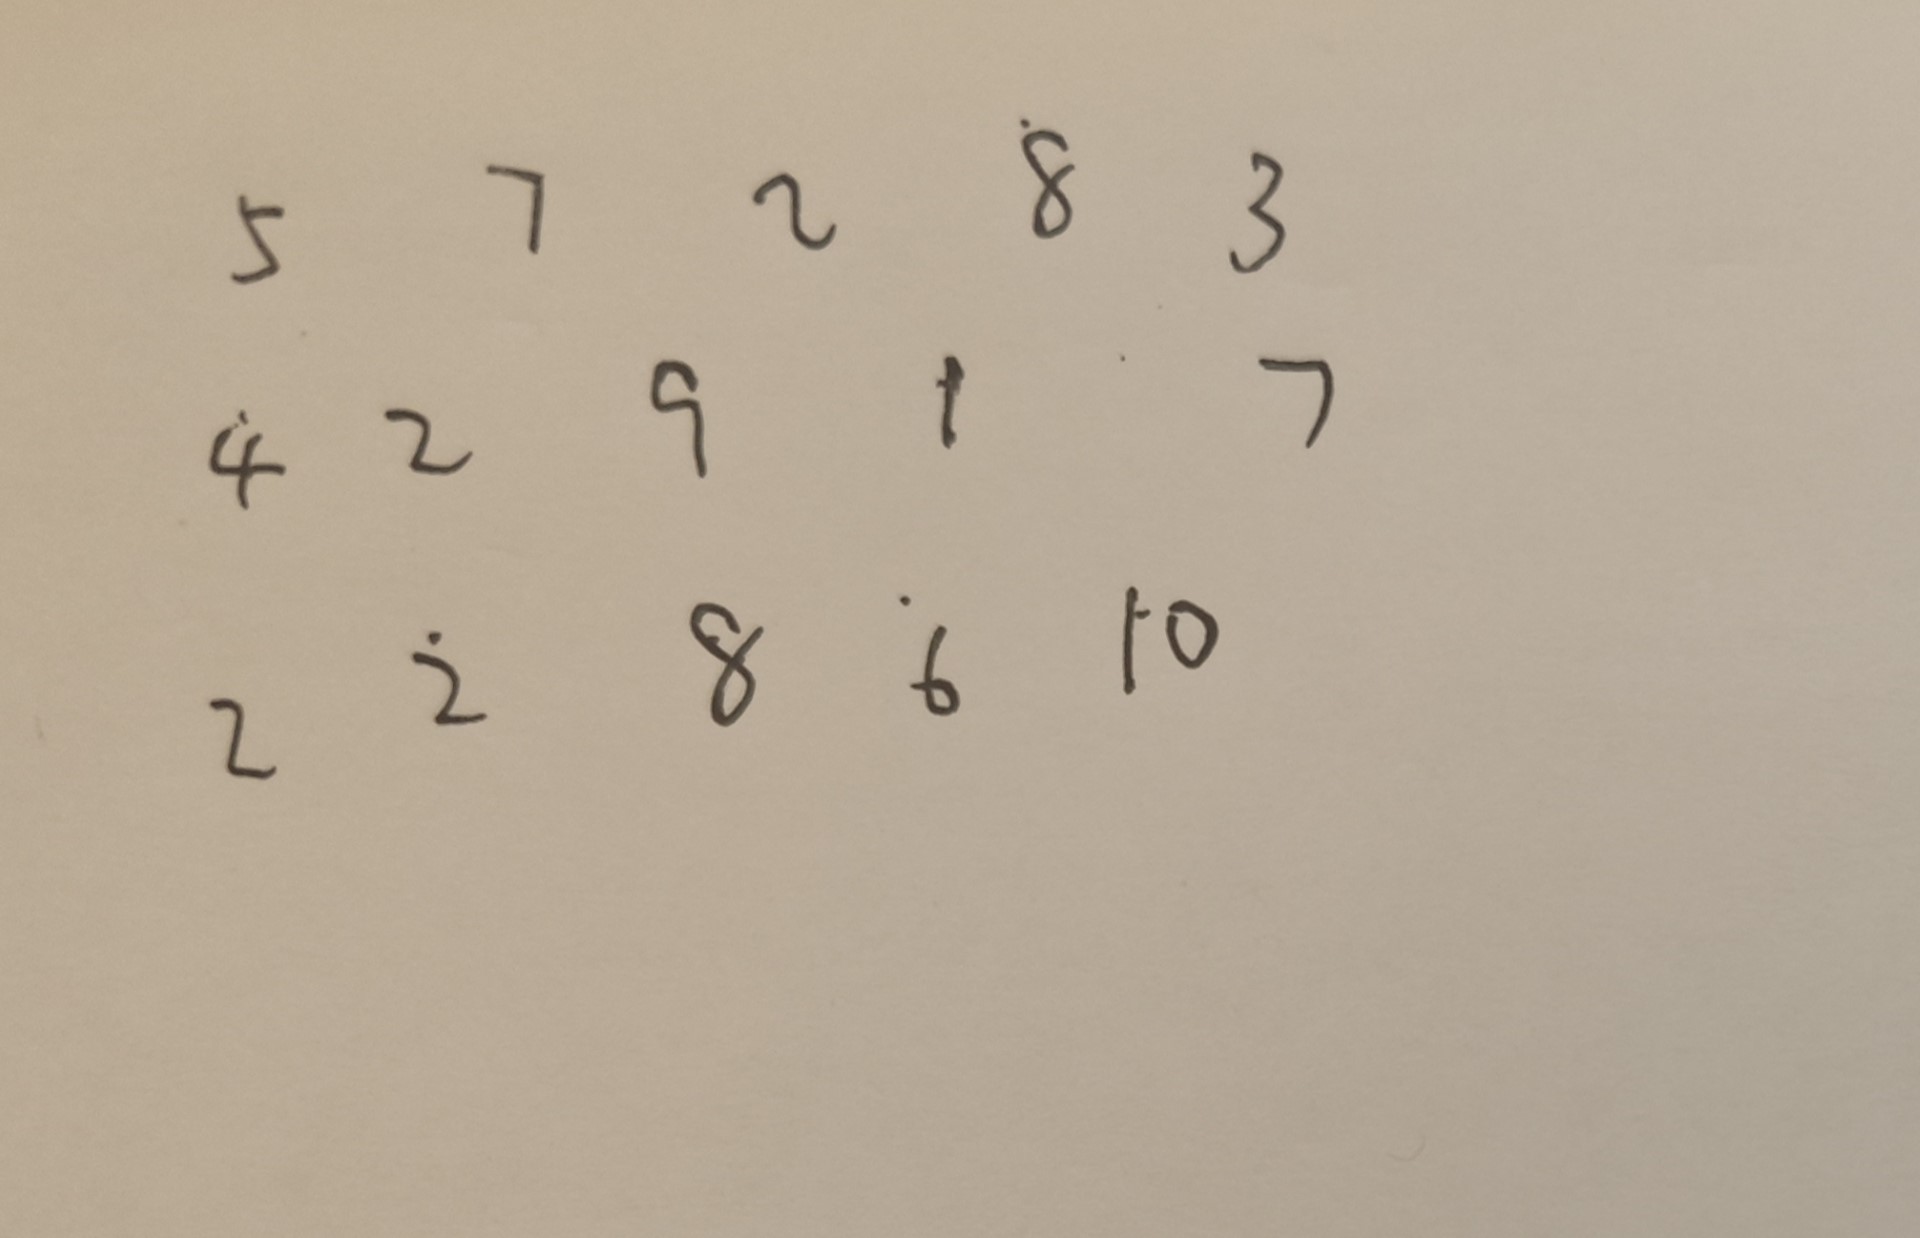 5 7 2 8 3
4 2 9 1 7
2 2 8 6 10